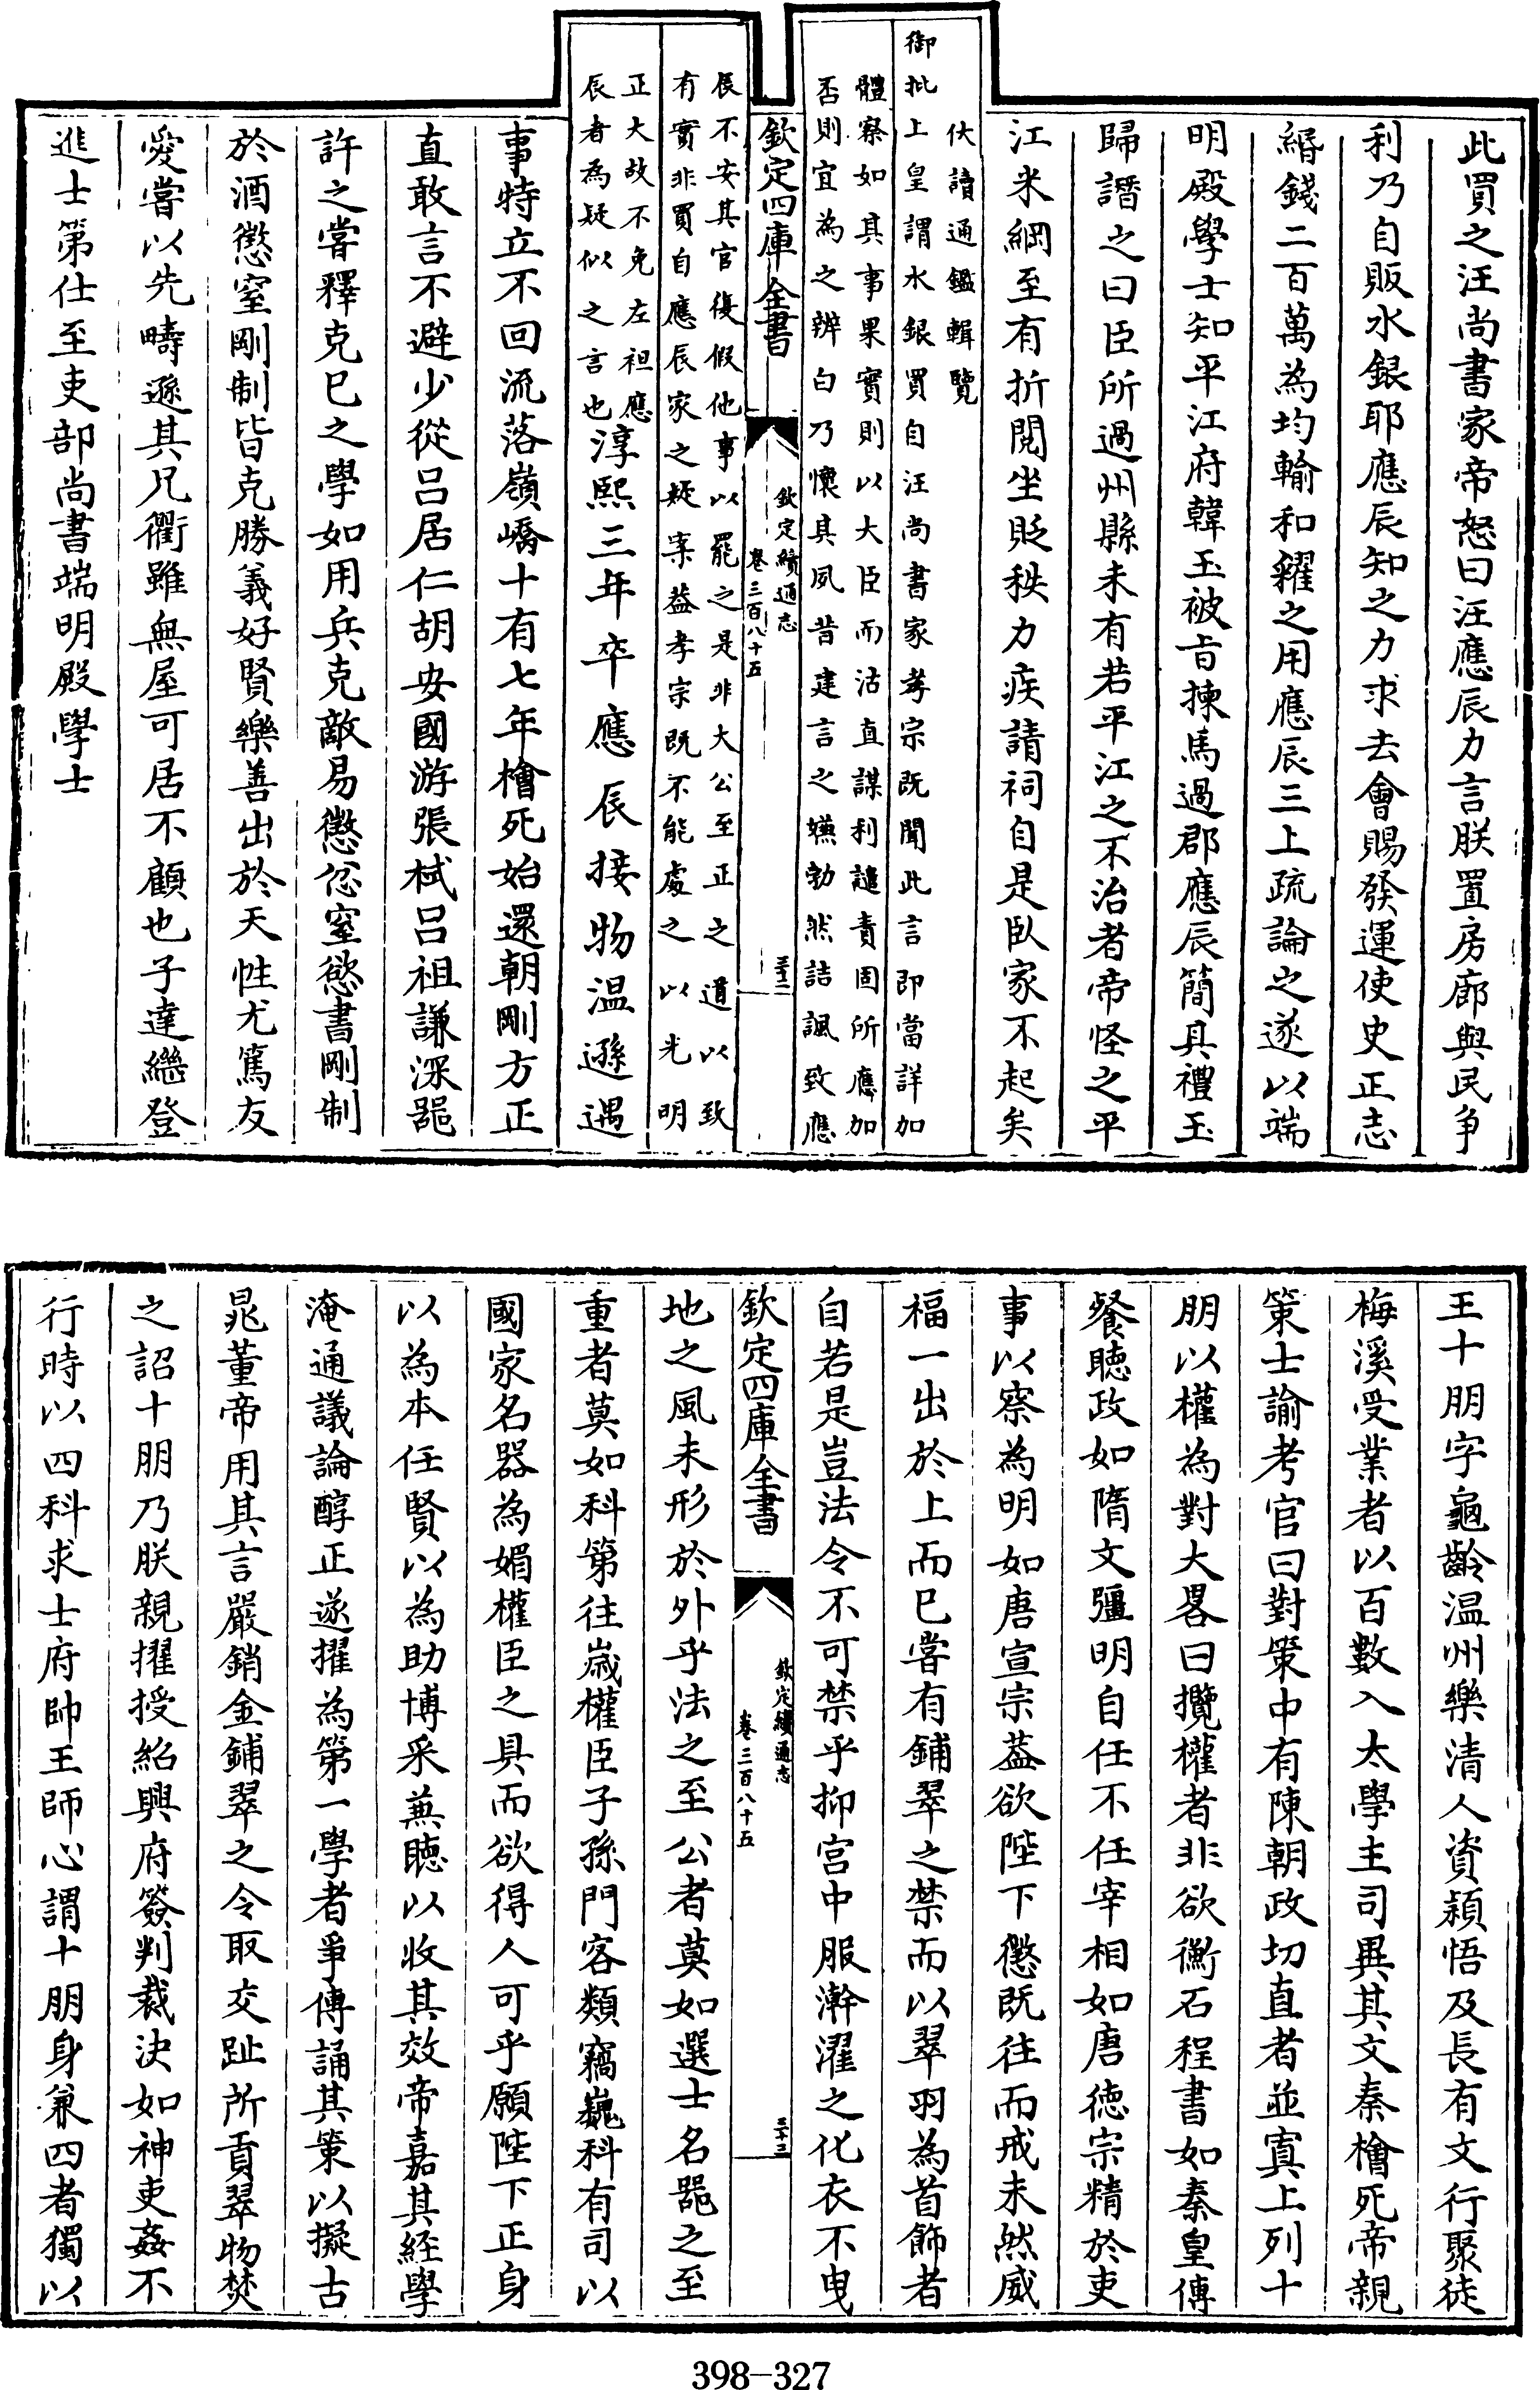 此買之汪尚書家帝怒曰汪應辰力言朕置房廊與民争
利乃自販水銀耶應辰知之力求去會賜發運使史正志
緡錢二百萬為均輸和糴之用應辰三上疏論之遂以端
明殿學士知平江府韓玉被旨揀馬過郡應辰簡具禮玉
歸譖之曰臣所過州縣未有若平江之不治者帝怪之平
江米綱至有折閱坐貶秩力疾請祠自是臥家不起矣
伏讀通鑑輯覽
御批上皇謂水銀買自汪尚書家孝宗既聞此言即當詳加
體察如其事果實則以大臣而沽直謀利譴責固所應加
否則宜為之辨白乃懷其夙昔建言之嫌勃然詰諷致應
欽定四庫全書
欽定續通志
卷三百八十五
三十二
辰不安其官復假他事以罷之是非大公至正之道以致
有實非買自應辰家之疑案益孝宗既不能處之以光明
正大故不免左袒應
辰者為疑似之言也淳熙三年卒應辰接物温遜遇
事特立不回流落嶺嶠十有七年檜死始還朝剛方正
直敢言不避少從吕居仁胡安國游張栻吕祖謙深器
許之嘗釋克已之學如用兵克敵易懲忿窒慾書剛制
於酒懲窒剛制皆克勝義好賢樂善出於天性尤篤友
愛嘗以先疇遜其兄衢雖無屋可居不顧也子逹繼登
進士第仕至吏部尚書端明殿學士
王十朋字龜齡温州樂清人資穎悟及長有文行聚徒
梅溪受業者以百數入太學主司異其文秦檜死帝親
策士諭考官曰對策中有陳朝政切直者並寘上列十
朋以權為對大畧曰攬權者非欲衡石程書如秦皇傳
餐聽政如隋文彊明自任不任宰相如唐德宗精於吏
事以察為明如唐宣宗葢欲陛下懲既往而戒未然威
福一出於上而已嘗有鋪翠之禁而以翠羽為首飾者
自若是豈法令不可禁乎抑宫中服澣濯之化衣不曳
欽定四庫全書
欽定續通志
卷三百八十五
三十三
地之風未形於外乎法之至公者莫如選士名器之至
重者莫如科第往歲權臣子孫門客類竊巍科有司以
國家名器為媚權臣之具而欲得人可乎願陛下正身
以為本任賢以為助博采兼聽以收其效帝嘉其經學
淹通議論醇正遂擢為第一學者爭傳誦其策以擬古
晁董帝用其言嚴銷金鋪翠之令取交趾所貢翠物焚
之詔十朋乃朕親擢授紹興府簽判裁決如神吏姦不
行時以四科求士府帥王師心謂十朋身兼四者獨以
398-327